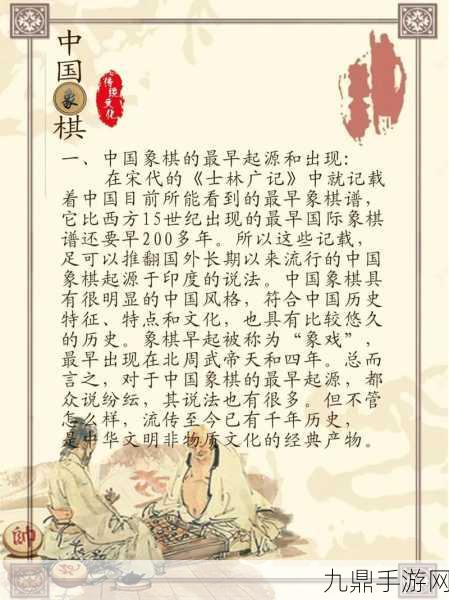 中国象棋
传统文化
一、中国象棋的最早起源和出现:
在宋代的《士林广记》中就记载
着中国目前所能看到的最早象棋谱,
它比西方15世纪出现的最早国际象棋
谱还要早200多年。所以这些记载,
足可以推翻国外长期以来流行的中国
象棋起源于印度的说法。中国象棋具
有很明显的中国风格,符合中国历史
特征、特点和文化,也具有比较悠久
的历史。象棋早起被称为“象戏”,
最早出现在北周武帝天和四年。总而
言之,对于中国象棋的最早起源,都
众说纷纭,其说法也有很多。但不管
怎么样,流传至今已有千年历史,
是中华文明非物质文化的经典产物。
帥
九鼎手游网